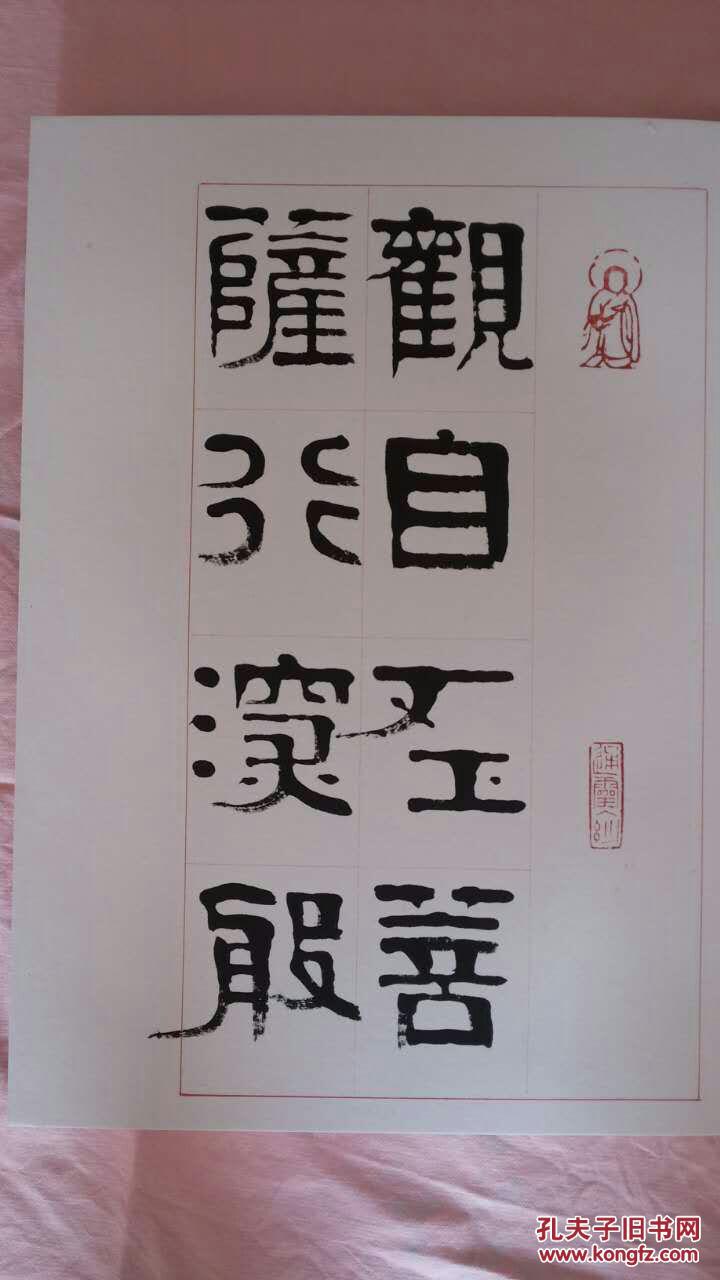 觀自在菩
薩行深般
孔夫子旧书网
www.kongfz.com